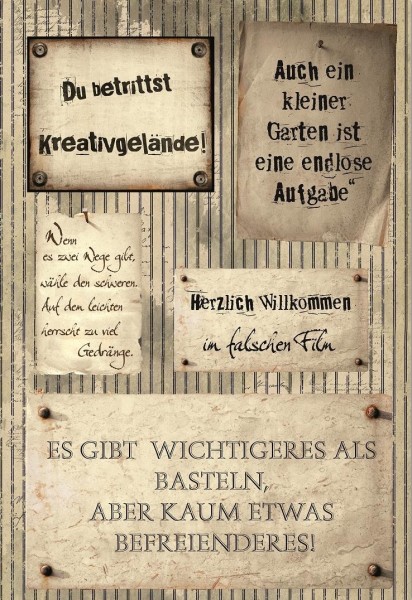 Du betrittst
Kreativgelände!
Auch ein
kleiner
Garten ist
eine endlose
Aufgabe"
Wenn
es zwei Wege gibt,
wähle den schweren.
Auf dem leichten
herrscht zu viel
Gedränge.
Herzlich Willkommen
im falschen Film
ES GIBT WICHTIGERES ALS
BASTELN,
ABER KAUM ETWAS
BEFREIENDERES!